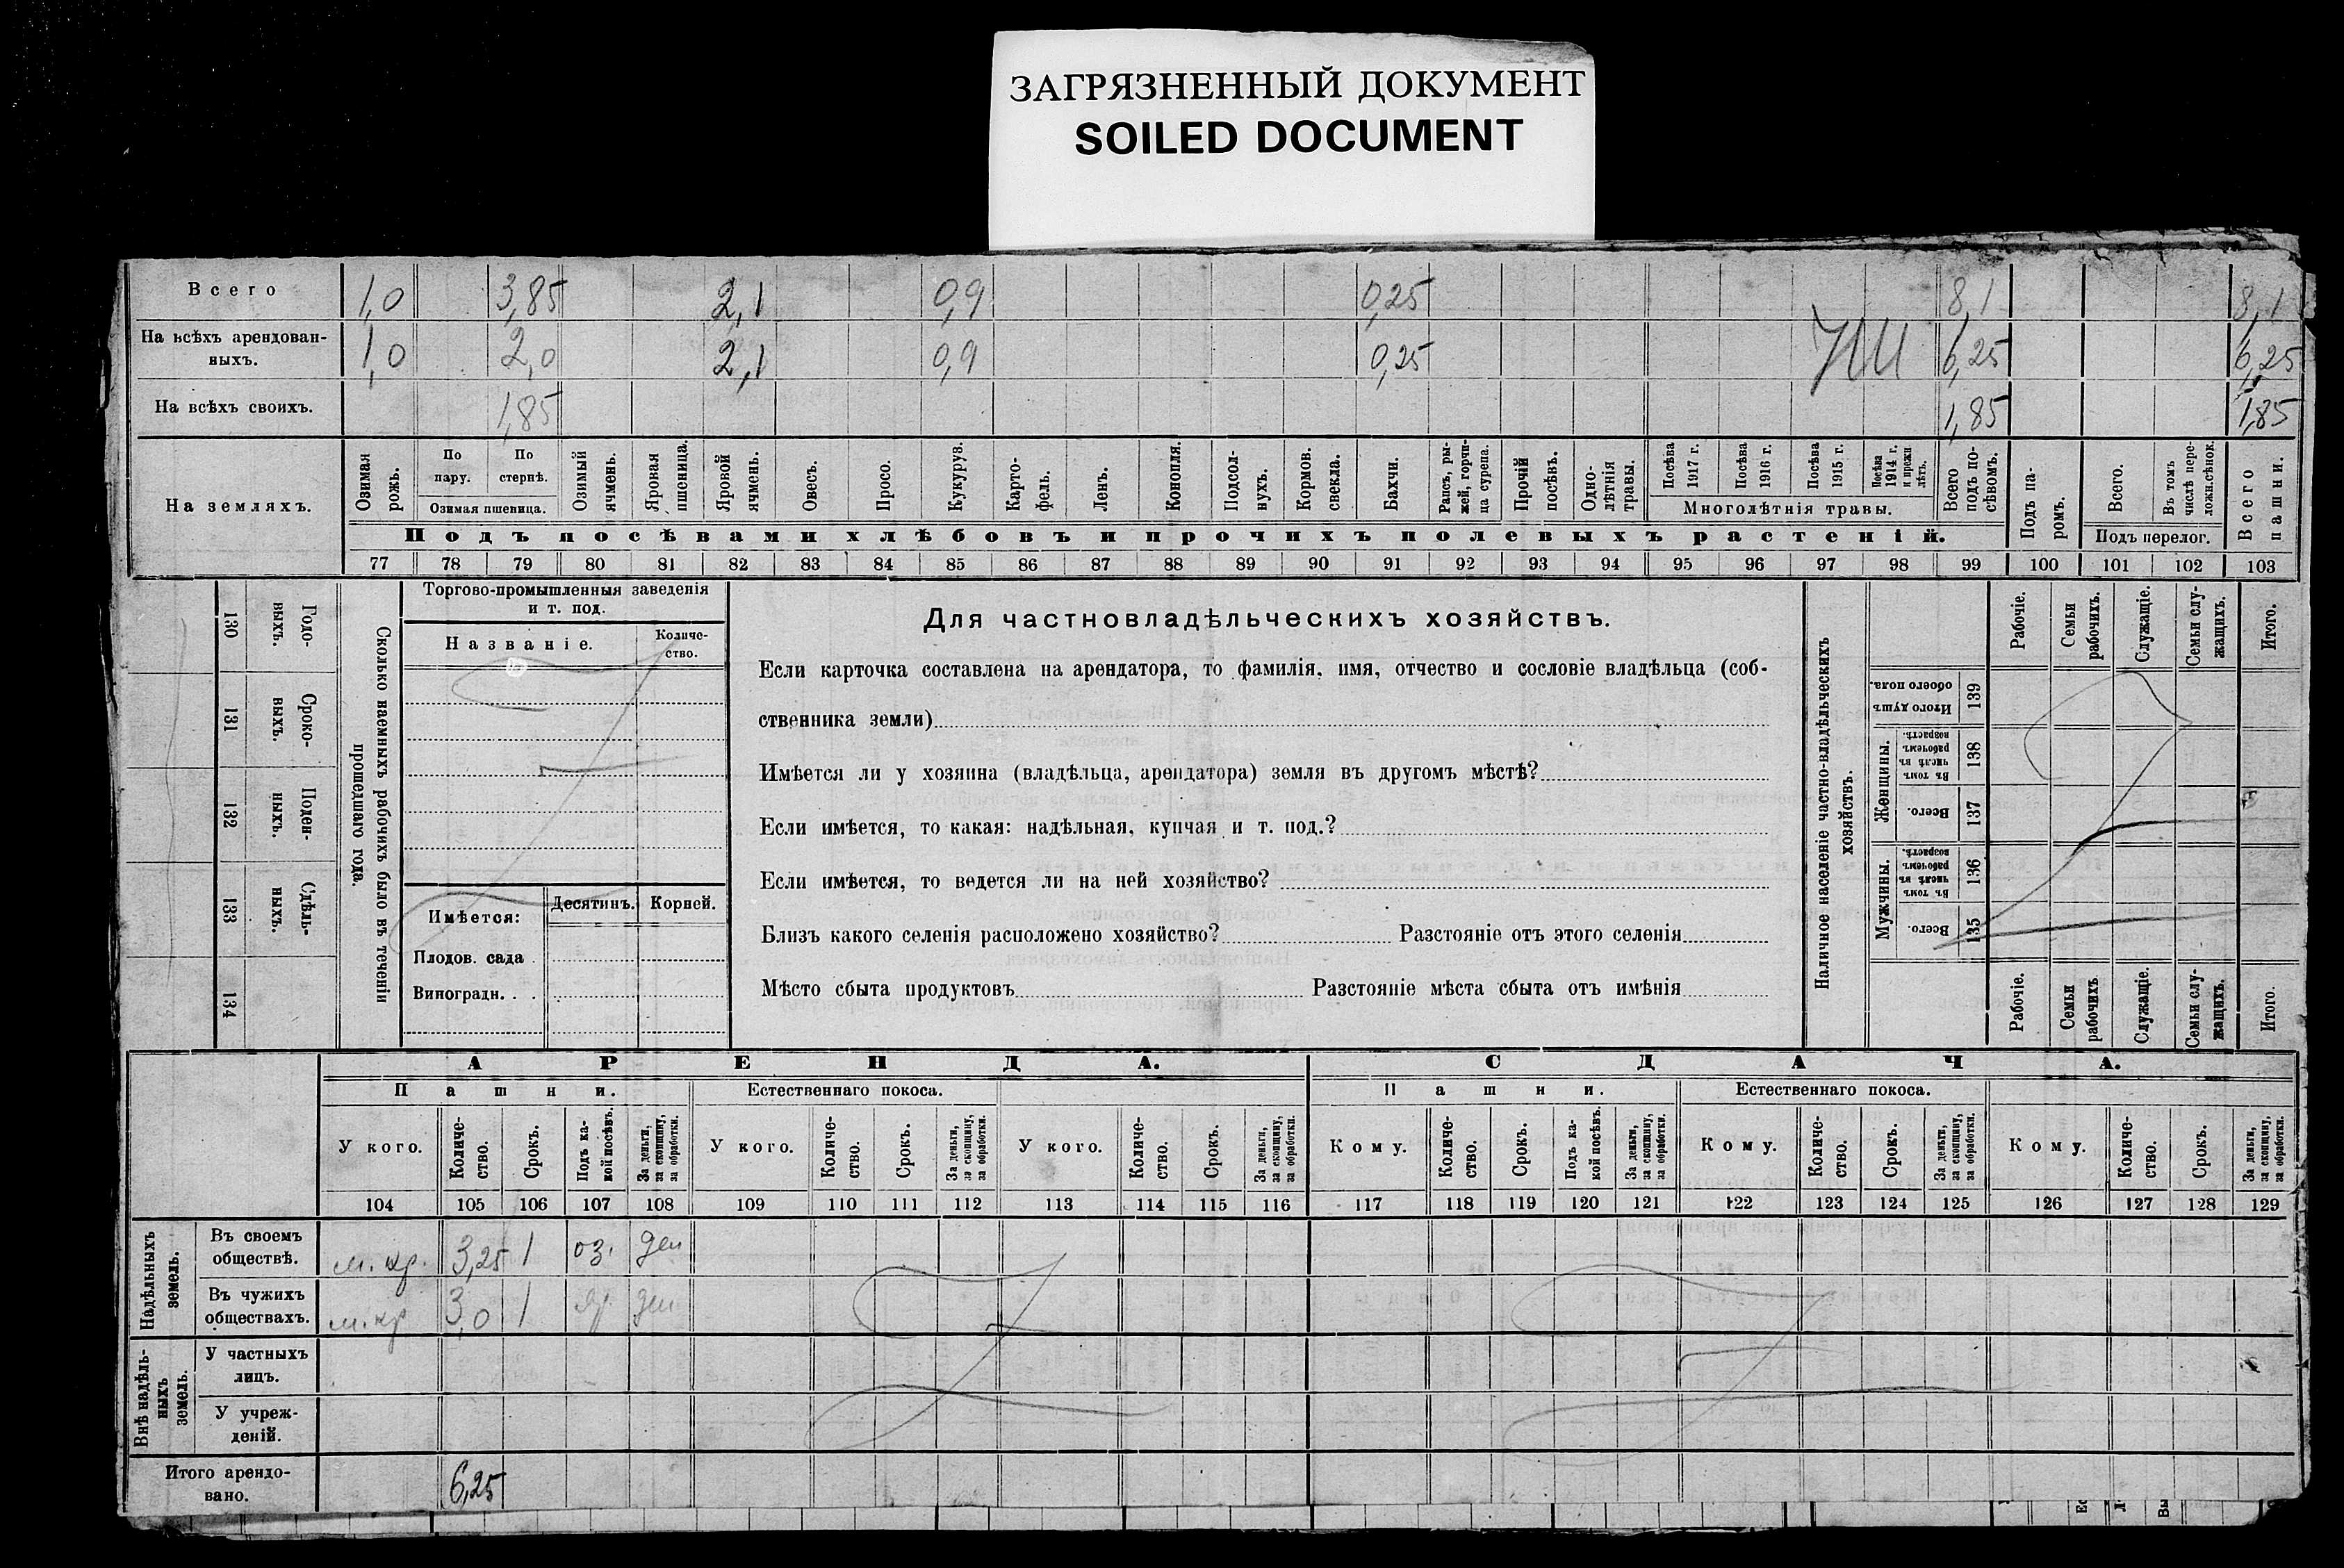 ЗАГРЯЗНЕННЫЙ ДОКУМЕНТ
SOILED DOCUMENT
Всего 1,0 3,85 2,1 0,9 0,25 8,1 8,1
На всѣхъ арендован-
ныхъ. 1,0 2,0 2,1 0,9 0,25 6,25 6,25
На всѣхъ своихъ. 1,85 1,85 1,85
На земляхъ.
Озимая рожь.
По пару.
По стернѣ.
Озимая пшеница.
Озимый ячмень.
Яровая пшеница.
Яровой ячмень.
Овесъ.
Просо.
Кукуруз.
Карто-
фель.
Ленъ.
Конопля.
Подсол-
нухъ.
Кормов. свекла.
Бахчи.
Рапсъ, ры-
жей, горчи-
ца сурепа.
Прочій посѣвъ.
Одно-
лѣтнія травы.
Посѣва 1917 г.
Посѣва 1916 г.
Посѣва 1915 г.
Посѣва 1914 г. и прежн лѣтъ.
Многолѣтнія травы.
Всего подъ по-
сѣвомъ.
Подъ па-
ромъ.
Всего.
Въ томъ числѣ пере-
ложн.сѣнок.
Подъ перелог.
Всего пашни.
Подъ посѣвами хлѣбовъ и прочихъ полевыхъ растеній.
77 78 79 80 81 82 83 84 85 86 87 88 89 90 91 92 93 94 95 96 97 98 99 100 101 102 103
130 Годо-
выхъ.
131 Сроко-
выхъ.
132 Поден-
ныхъ.
133 Сдѣль-
ныхъ.
134
Сколько наемныхъ рабочихъ было въ теченіи
прошедшаго года.
Торгово-промышленныя заведенія
и т. под.
Названіе.
Количе-
ство.
Имѣется:
Десятинъ. Корней.
Плодов. сада .
Виноградн. . .
Для частновладѣльческихъ хозяйствъ.
Если карточка составлена на арендатора, то фамилія, имя, отчество и сословіе владѣльца (соб-
ственника земли)
Имѣется ли у хозяина (владѣльца, арендатора) земля въ другомъ мѣстѣ?
Если имѣется, то какая: надѣльная, купчая и т. под.?
Если имѣется, то ведется ли на ней хозяйство?
Близъ какого селенія расположено хозяйство? Разстояніе отъ этого селенія
Мѣсто сбыта продуктовъ Разстояніе мѣста сбыта отъ имѣнія
Наличное населеніе частно-владѣльческихъ
хозяйствъ.
Рабочіе.
Семьи рабочихъ.
Служащіе.
Семьи слу-
жащихъ.
Итого.
Итого душъ обоего пола. 139
Женщины.
Въ томъ числѣ въ рабочемъ возрастѣ. 138
Всего. 137
Мужчины.
Въ томъ числѣ въ рабочемъ возрастѣ. 136
Всего. 135
Рабочіе.
Семьи рабочихъ
Служащіе.
Семьи слу-
жащихъ.
Итого.
АРЕНДА. СДАЧА.
Пашни. Естественнаго покоса. Пашни. Естественнаго покоса.
У кого.
Количе-
ство.
Срокъ.
Подъ ка-
кой посѣвъ.
За деньги, за скопщину, за обработки.
У кого.
Количе-
ство.
Срокъ.
За деньги, за скопщину, за обработки.
У кого.
Количе-
ство.
Срокъ.
За деньги, за скопщину, за обработки.
Кому.
Количе-
ство.
Срокъ.
Подъ ка-
кой посѣвъ.
За деньги, за скопщину, за обработки.
Кому.
Количе-
ство.
Срокъ.
За деньги, за скопщину, за обработки.
Кому.
Количе-
ство.
Срокъ.
За деньги, за скопщину, за обработки.
104 105 106 107 108 109 110 111 112 113 114 115 116 117 118 119 120 121 122 123 124 125 126 127 128 129
Надѣльныхъ
земель.
Въ своемъ
обществѣ. м. кр. 3,25 1 оз. ден
Въ чужихъ
обществахъ. м. кр 3,0 1 яр ден
Внѣ надѣль-
ныхъ
земель.
У частныхъ
лицъ.
У учреж-
деній.
Итого арендо-
вано. 6,25